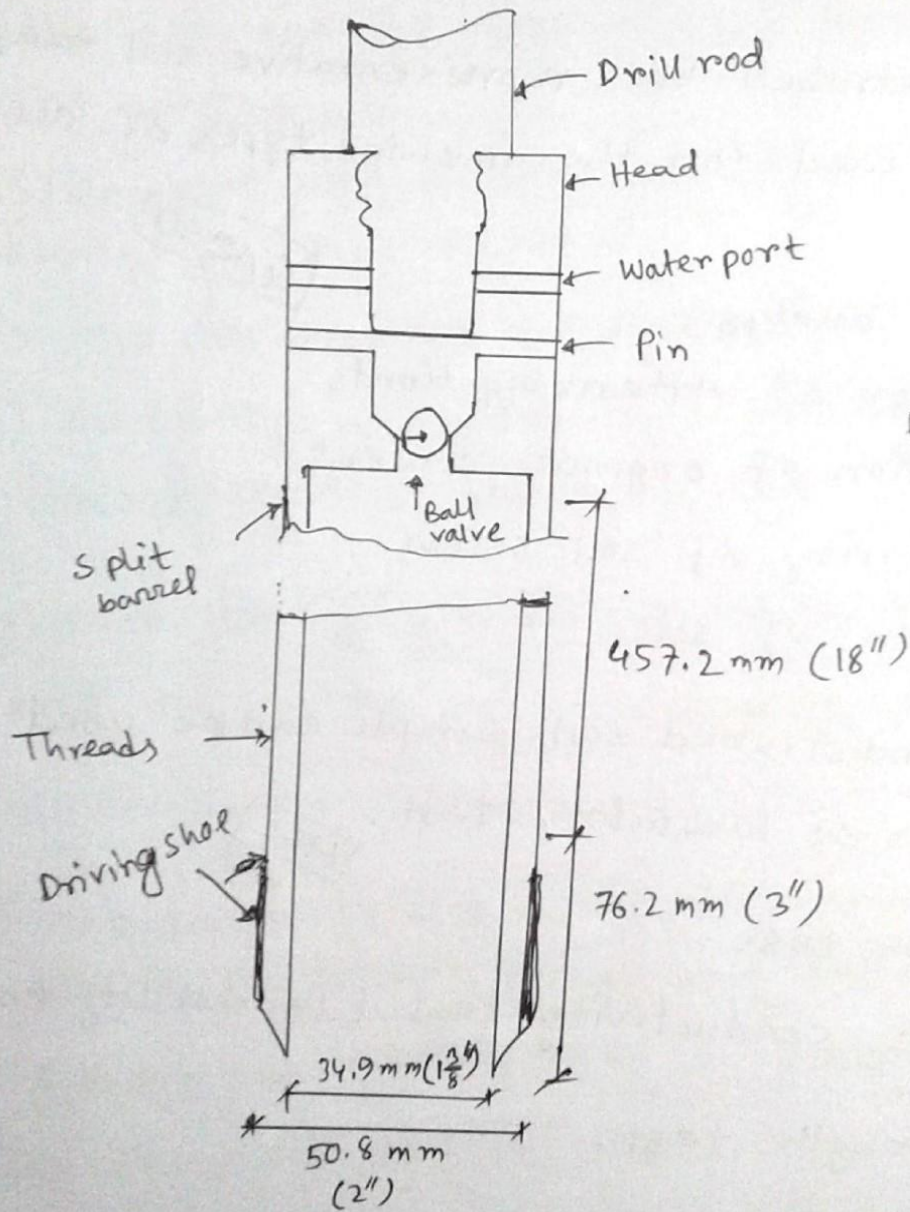 Drill rod
Head
Water port
Pin
Ball
valve
Split
barrel
457.2 mm (18")
Threads
Driving shoe
76.2 mm (3")
34.9 mm (1 3/8")
50.8 mm
(2")